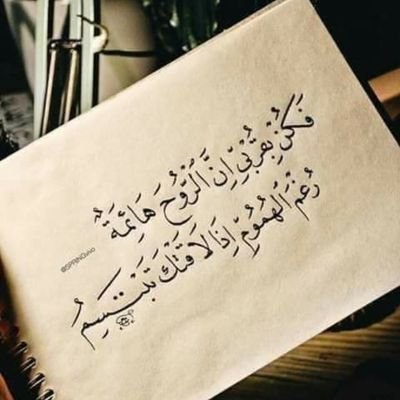 فَكُنْ بِقُرْبِي إِنَّ الرُّوحَ هَائِمَةٌ
رُغْمَ الْهُمُومِ إِذَا لَاقَتْكَ تَبْتَسِمُ